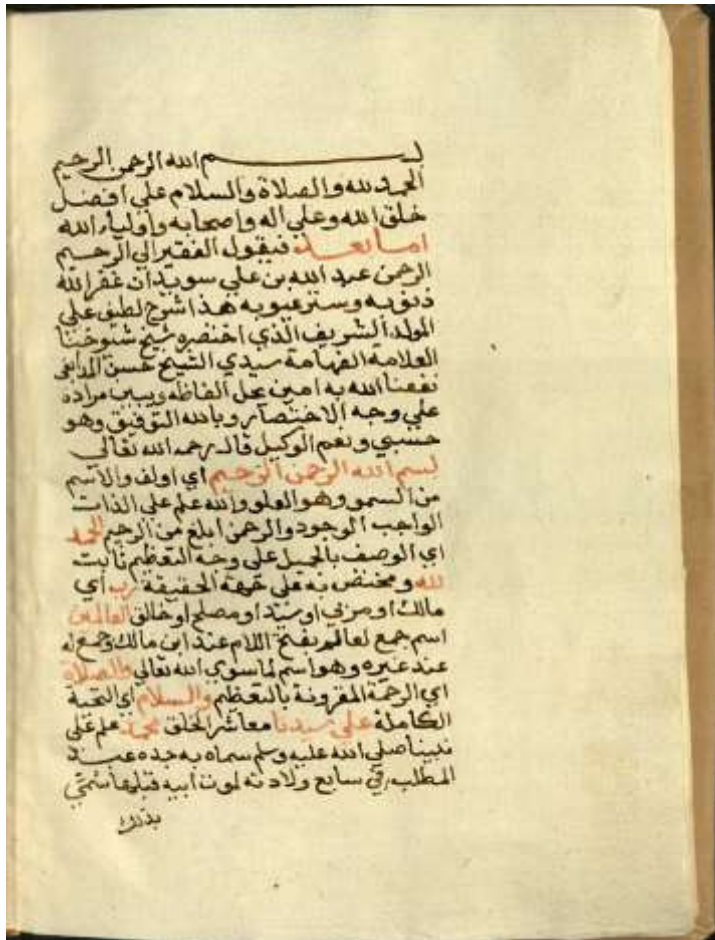 بسم الله الرحمن الرحيم
الحمد لله والصلاة والسلام علي افضل
خلق الله وعلي اله واصحابه واولياء الله
اما بعد فيقول الفقير الي الرحيم
الرحمن عبد الله بن علي سويدان غفر الله
ذنوبه وستر عيوبه هذا شرح لطيف علي
المولد الشريف الذي اختصره شيخ شيوخنا
العلامة الفهامة سيدي الشيخ حسن المدابغي
نفعنا الله به امين يحل الفاظه ويبين مراده
علي وجه الاختصار وبالله التوفيق وهو
حسبي ونعم الوكيل قال رحمه الله تعالي
بسم الله الرحمن الرحيم اي اولف والاسم
من السمو وهو العلو والله علم علي الذات
الواجب الوجود والرحمن ابلغ من الرحيم الحمد
اي الوصف بالجميل علي وجه التعظيم ثابت
لله ومختص به علي جهة الحقيقة رب اي
مالك او مربي او سيد او مصلح او خالق العالمين
اسم جمع لعالم بفتح اللام عند ابن مالك وجمع له
عند غيره وهو اسم لما سوي الله تعالي والصلاة
اي الرحمة المقرونة بالتعظيم والسلام اي التحية
الكاملة علي سيدنا معاشر الخلق محمد علم علي
نبينا صلي الله عليه وسلم سماه به جده عبد
المطلب في سابع ولادته لموت ابيه قبلها سمي
بذلك